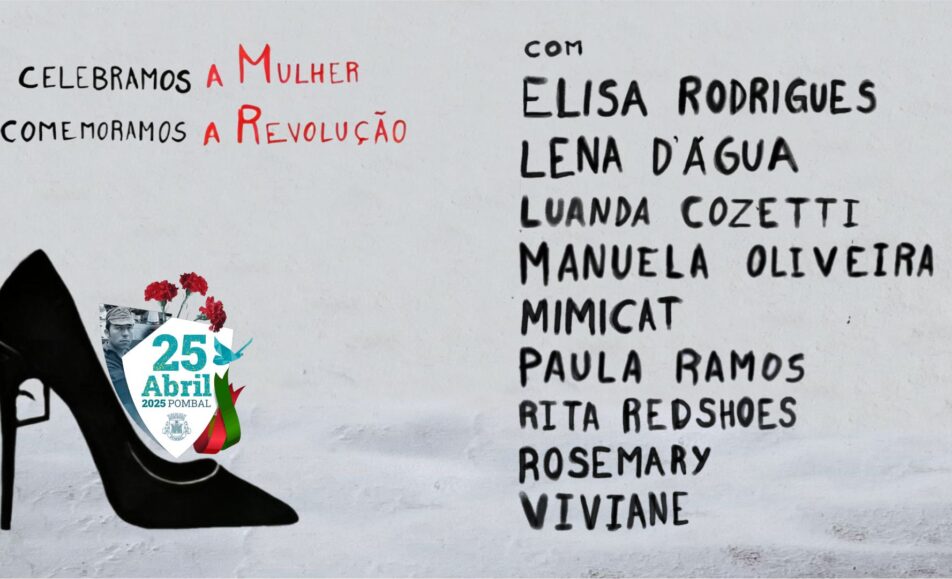 CELEBRAMOS A MULHER
COMEMORAMOS A REVOLUÇÃO
25
Abril
2025 POMBAL
COM
ELISA RODRIGUES
LENA D'ÁGUA
LUANDA COZETTI
MANUELA OLIVEIRA
MIMICAT
PAULA RAMOS
RITA REDSHOES
ROSEMARY
VIVIANE